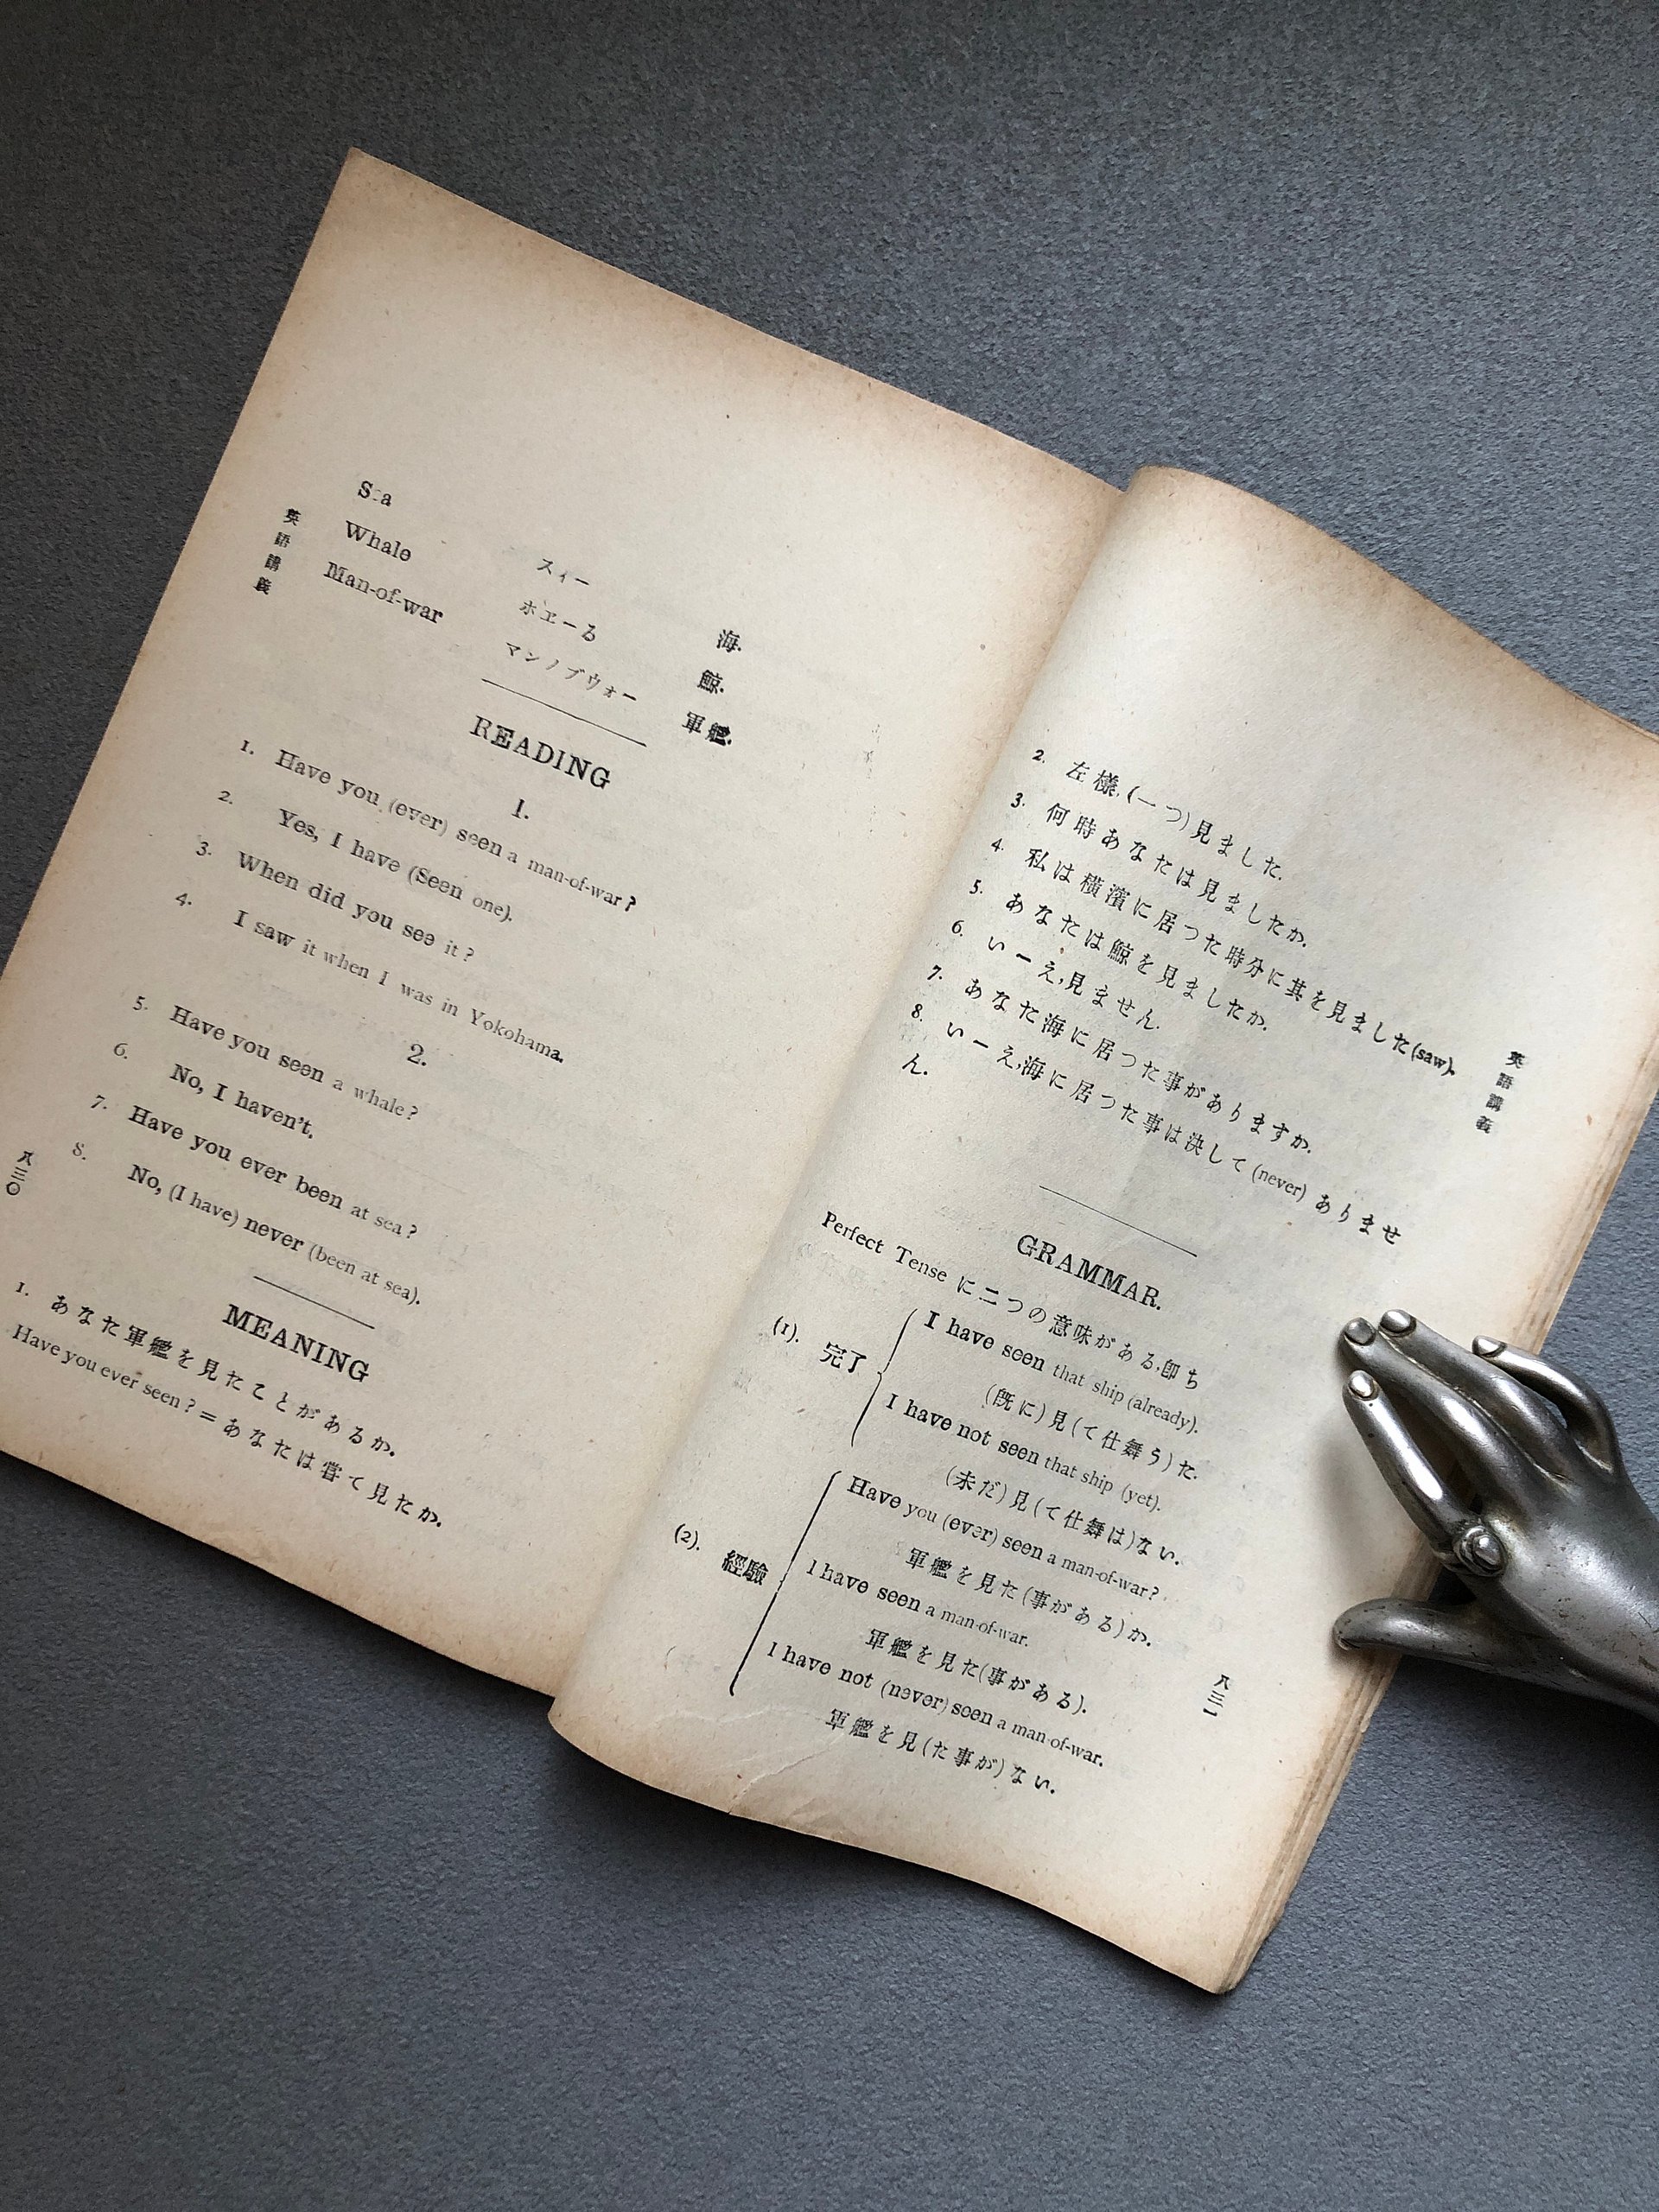 英語講義
Sea スィー 海.
Whale ホエーる 鯨.
Man-of-war マンノブウォー 軍艦.
READING
1.
1. Have you (ever) seen a man-of-war?
2. Yes, I have (Seen one).
3. When did you see it?
4. I saw it when I was in Yokohama.
2.
5. Have you seen a whale?
6. No, I haven't.
7. Have you ever been at sea?
8. No, (I have) never (been at sea).
MEANING
1. あなた軍艦を見たことがあるか.
Have you ever seen? = あなたは嘗て見たか.
八三〇
英語講義
2. 左樣,(一つ)見ました.
3. 何時あなたは見ましたか.
4. 私は橫濱に居つた時分に其を見ました(saw).
5. あなたは鯨を見ましたか.
6. いーえ,見ません.
7. あなた海に居つた事がありますか.
8. いーえ,海に居つた事は決して(never)ありませ
ん.
GRAMMAR.
Perfect Tense に二つの意味がある,卽ち
(1). 完了
I have seen that ship (already).
(既に)見(て仕舞う)た.
I have not seen that ship (yet).
(未だ)見(て仕舞は)ない.
(2). 經驗
Have you (ever) seen a man-of-war?
軍艦を見た(事がある)か.
I have seen a man-of-war.
軍艦を見た(事がある).
I have not (never) seen a man-of-war.
軍艦を見(た事が)ない.
八三一